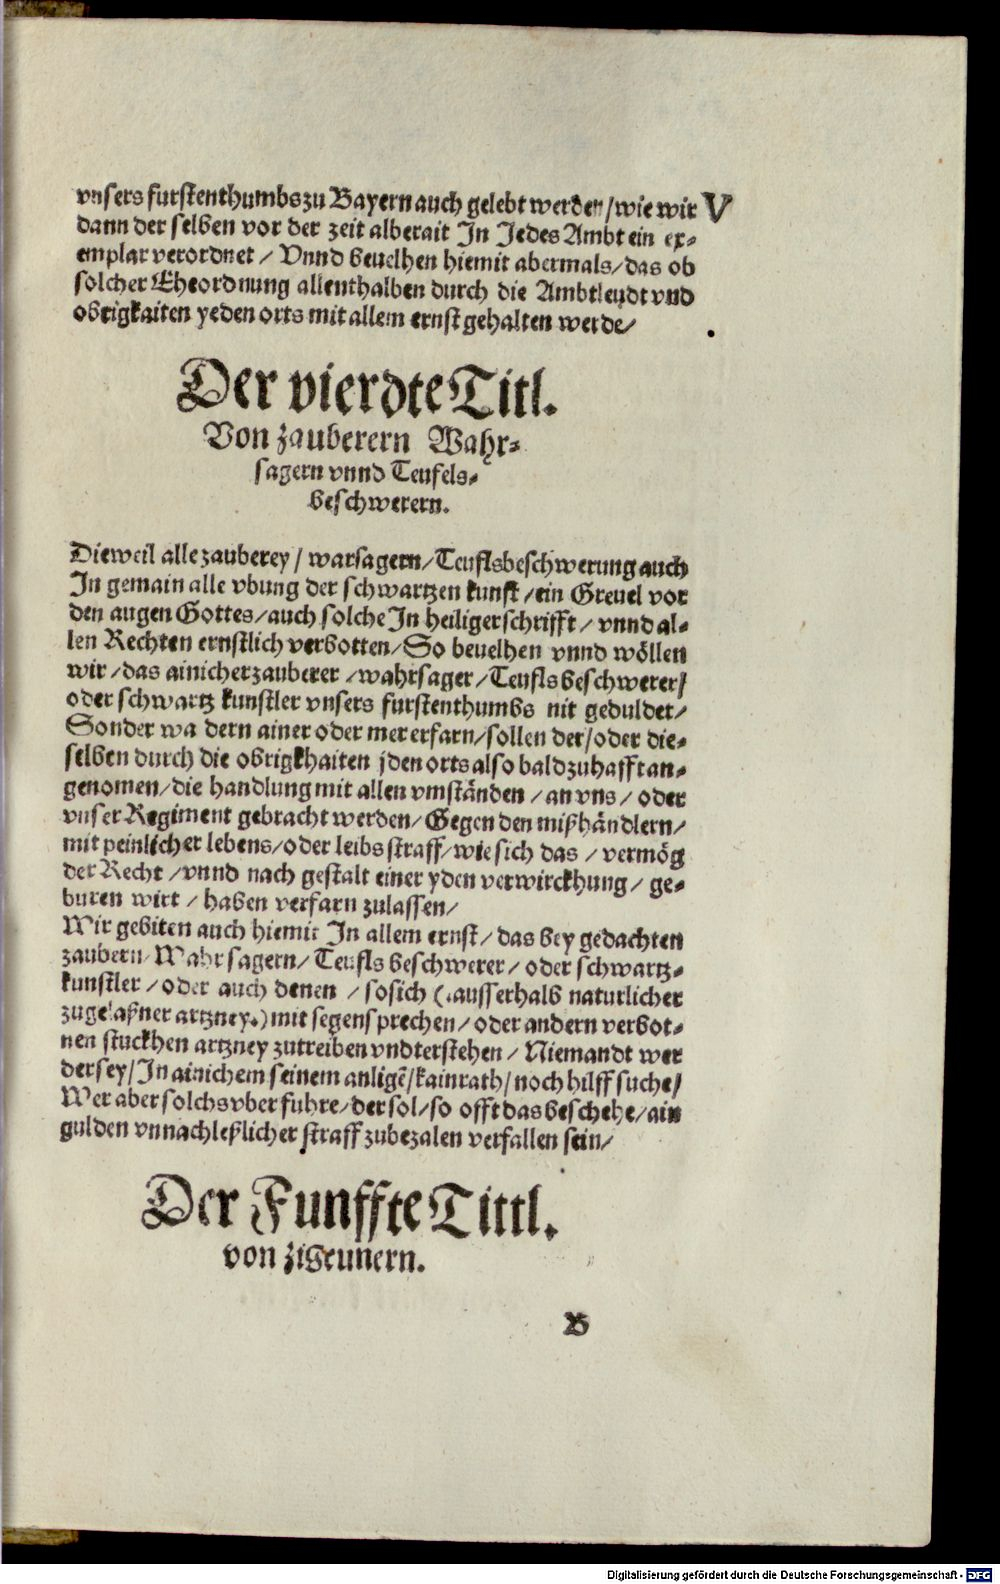 vnsers furstenthumbs zu Bayern auch gelebt werden / wie wir V
dann der selben vor der zeit alberait In Jedes Ambt ein ex⸗
emplar verordnet / Vnnd beuelhen hiemit abermals / das ob
solcher Eheordnung allenthalben durch die Ambtleudt vnd
obrigkaiten yeden orts mit allem ernst gehalten werde /
Der vierdte Titl.
Von zauberern Wahr⸗
sagern vnnd Teufels⸗
beschwerern.
Dieweil alle zauberey / warsagern / Teuflsbeschwerung auch
In gemain alle vbung der schwartzen kunst / ein Greuel vor
den augen Gottes / auch solche In heiliger schrifft / vnnd al⸗
len Rechten ernstlich verbotten / So beuelhen vnnd wöllen
wir / das ainicher zauberer / wahrsager / Teufls beschwerer /
oder schwartz kunstler vnsers furstenthumbs nit geduldet /
Sonder wa dern ainer oder mer erfarn / sollen der / oder die⸗
selben durch die obrigkhaiten jden orts also bald zuhafft an⸗
genomen / die handlung mit allen vmständen / an vns / oder
vnser Regiment gebracht werden / Gegen den mißhändlern /
mit peinlicher lebens / oder leibs straff / wie sich das / vermög
der Recht / vnnd nach gestalt einer yden verwirckhung / ge⸗
buren wirt / haben verfarn zulassen /
Wir gebiten auch hiemit In allem ernst / das bey gedachten
zaubern / Wahrsagern / Teufls beschwerer / oder schwartz⸗
kunstler / oder auch denen / so sich (.ausserhalb naturlicher
zugelaßner artzney.) mit segensprechen / oder andern verbot⸗
nen stuckhen artzney zutreiben vndterstehen / Niemandt wer
der sey / In ainichem seinem anligē / kain rath / noch hilff suche /
Wer aber solchs vberfuhre / der sol / so offt das beschehe / ain
gulden vnnachleßlicher straff zubezalen verfallen sein /
Der Funffte Tittl.
von zigeunern.
B
Digitalisierung gefördert durch die Deutsche Forschungsgemeinschaft - DFG